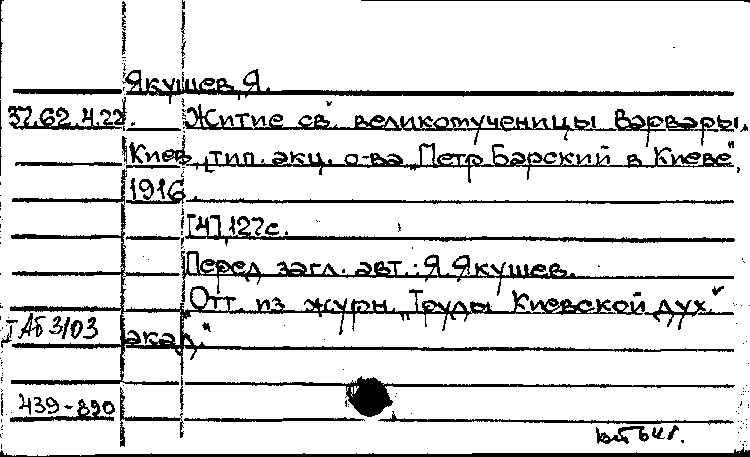 Якушев, Я.
37.62.4.22. Житие св. великомученицы Варвары.
Киев, тип. акц. о-ва "Петр Барский в Киеве",
1916.
[4], 127 с.
Перед загл. авт.: Я. Якушев.
"Отт. из журн. "Труды Киевской дух.
I АБ 3/03 акад."
439-890